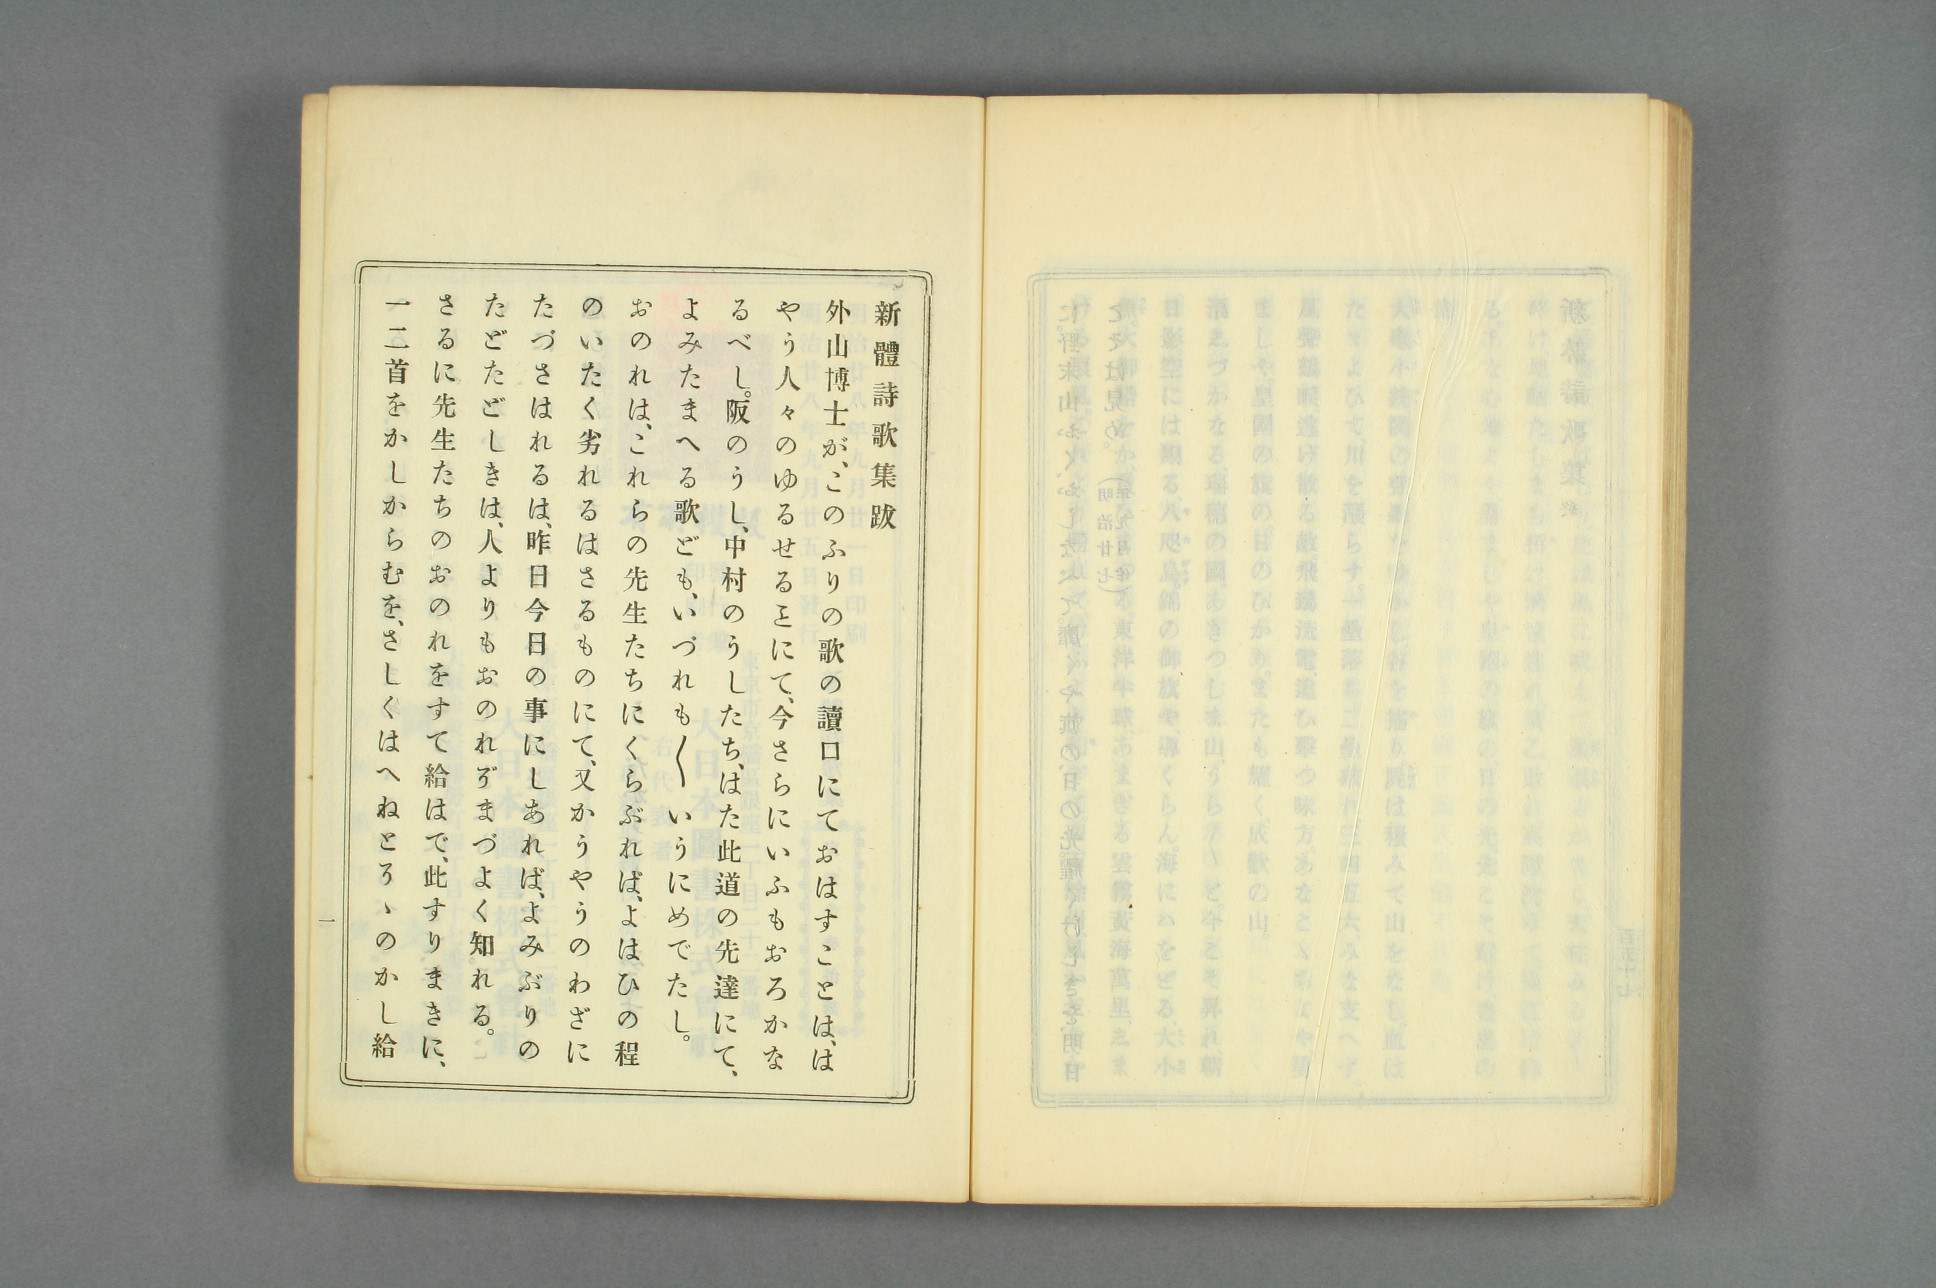 新體詩歌集跋
外山博士が、このふりの歌の讀口にておはすことは、は
やう人々のゆるせるヿにて、今さらにいふもおろかな
るべし。阪のうし、中村のうしたち、はた此道の先達にて、
よみたまへる歌ども、いづれも〱いうにめでたし。
おのれは、これらの先生たちにくらぶれば、よはひの程
のいたく劣れるはさるものにて、又かうやうのわざに
たづさはれるは、昨日今日の事にしあれば、よみぶりの
たどたどしきは、人よりもおのれぞまづよく知れる。
さるに先生たちのおのれをすて給はで、此すりまきに、
一二首をかしからむを、さしくはへねとろゝのかし給
一